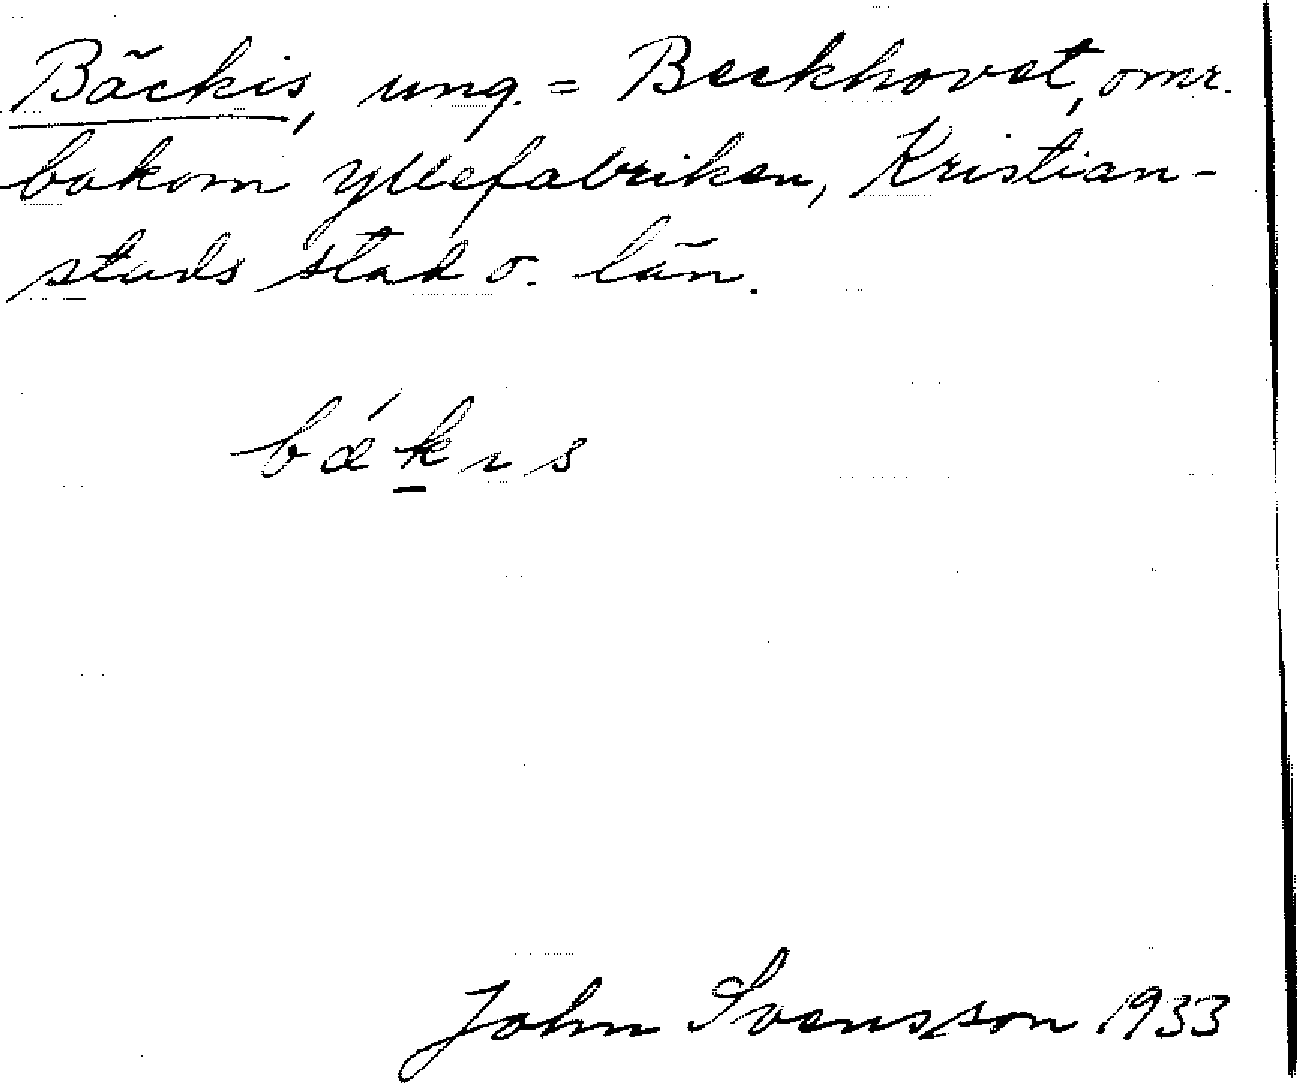 Bäckis, ung. = Beckhovet, omr.
bakom yllefabriken, Kristian-
stads stad o. län.
bǽk̲ıs
John Svensson 1933